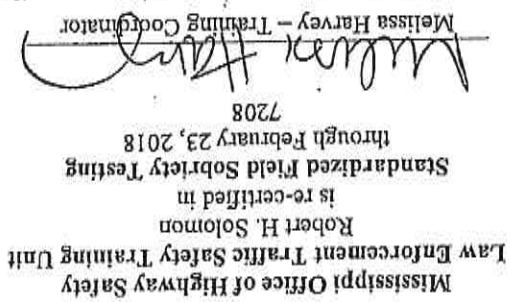 Mississippi Office of Highway Safety
Law Enforcement Traffic Safety Training Unit
Robert H. Solomon
is re-certified in
Standardized Field Sobriety Testing
through February 23, 2018
7208
Melissa Harvey – Training Coordinator